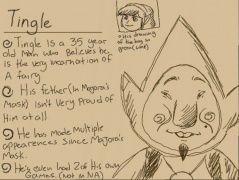 Tingle
Tingle is a 35 year
old man who Believes he
is the very incarnation of
A fairy
His father (In Majora's
Mask) isn't Very Proud of
Him at all
He has Made Multiple
appearences Since Majora's
Mask.
He's even had 2 of His own
Games. (Not in NA)
His drawing
of the boy in
green (Link)